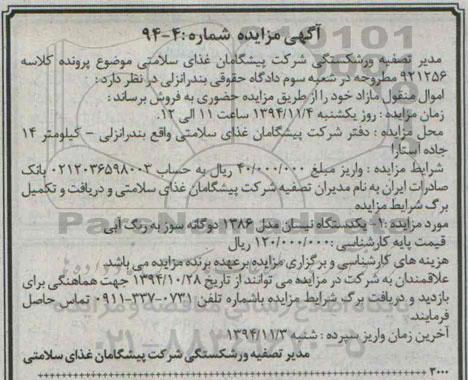 آگهی مزایده شماره :۴-۹۴
مدیر تصفیه ورشکستگی شرکت پیشگامان غذای سلامتی موضوع پرونده کلاسه
۹۲۱۲۵۶ مطروحه در شعبه سوم دادگاه حقوقی بندرانزلی در نظر دارد :
اموال منقول مازاد خود را از طریق مزایده حضوری به فروش برساند :
زمان مزایده : روز یکشنبه ۱۳۹۴/۱۱/۴ ساعت ۱۱ الی ۱۲.
محل مزایده : دفتر شرکت پیشگامان غذای سلامتی واقع بندرانزلی - کیلومتر ۱۴
جاده آستارا
شرایط مزایده : واریز مبلغ ۴۰/۰۰۰/۰۰۰ ریال به حساب ۰۲۱۲۰۳۶۵۹۸۰۰۳ بانک
صادرات ایران به نام مدیران تصفیه شرکت پیشگامان غذای سلامتی و دریافت و تکمیل
برگ شرایط مزایده
مورد مزایده :۱- یکدستگاه نیسان مدل ۱۳۸۶ دوگانه سوز به رنگ آبی
قیمت پایه کارشناسی :۱۲۰/۰۰۰/۰۰۰ ریال
هزینه های کارشناسی و برگزاری مزایده برعهده برنده مزایده می باشد
علاقمندان به شرکت در مزایده می توانند از تاریخ ۱۳۹۴/۱۰/۲۸ جهت هماهنگی برای
بازدید و دریافت برگ شرایط مزایده باشماره تلفن ۰۷۳۱-۳۳۷-۰۹۱۱ تماس حاصل
فرمایند.
آخرین زمان واریز سپرده : شنبه ۱۳۹۴/۱۱/۳
مدیر تصفیه ورشکستگی شرکت پیشگامان غذای سلامتی
۲۰۰۰